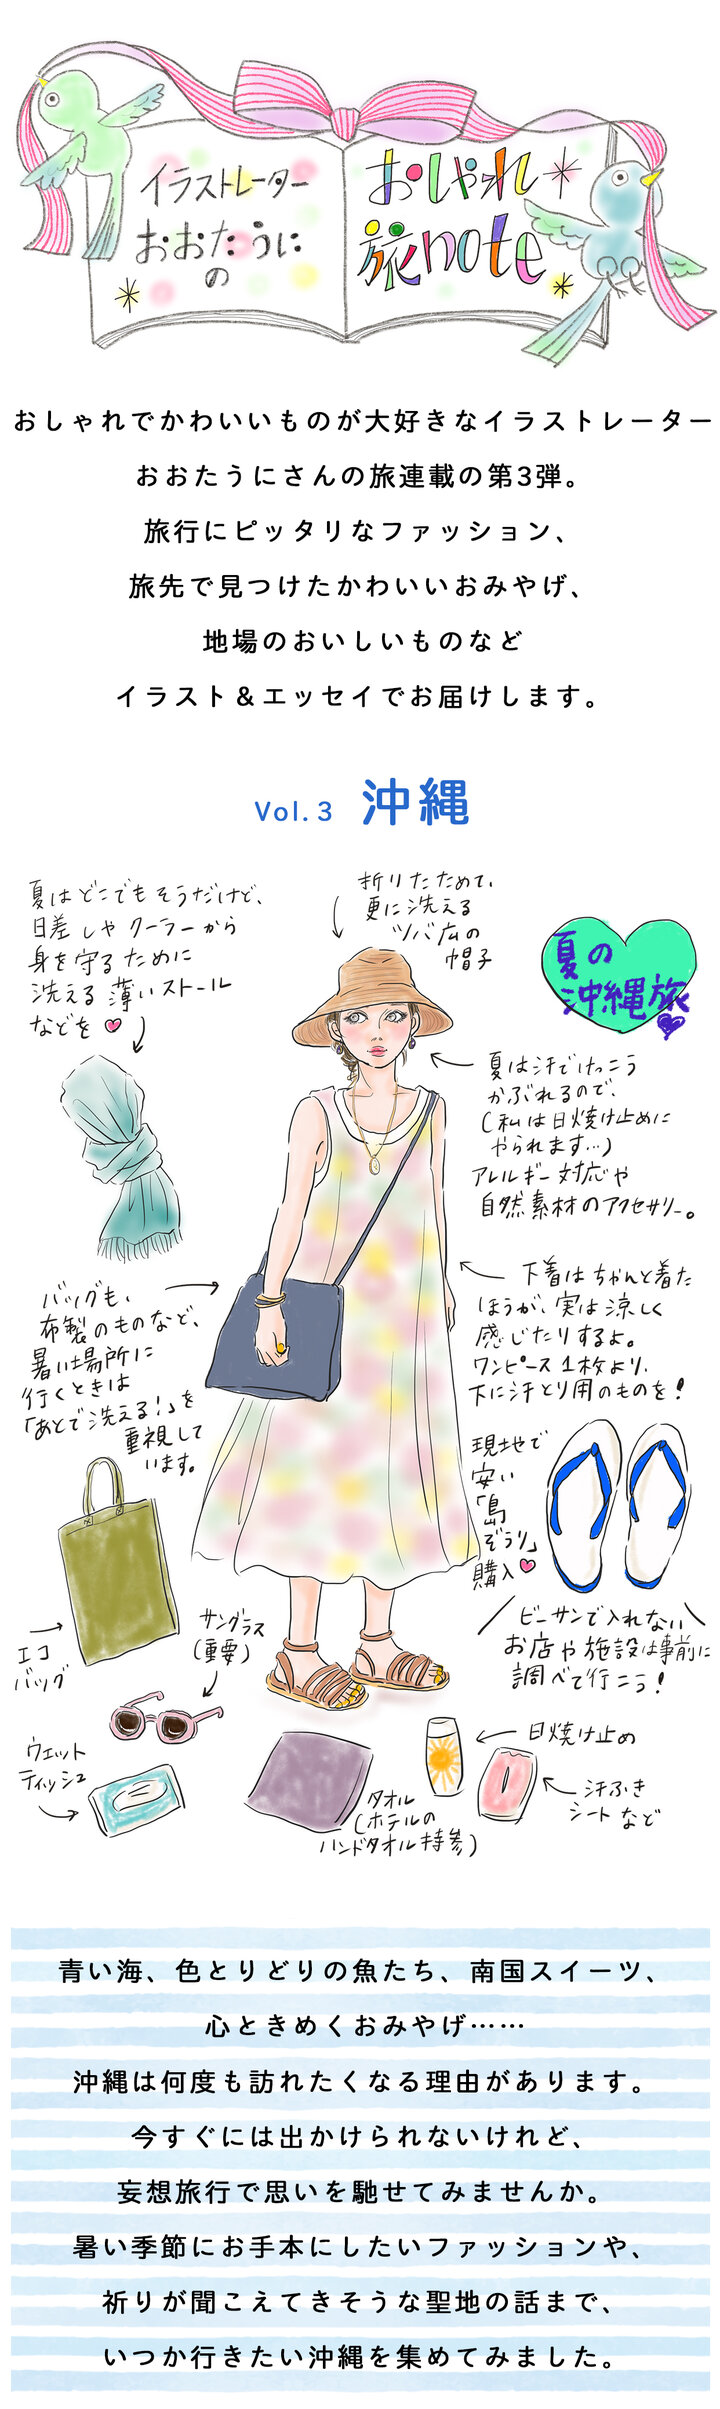 イラストレーター
おおたうに
の
おしゃれ
旅note
おしゃれでかわいいものが大好きなイラストレーター
おおたうにさんの旅連載の第3弾。
旅行にピッタリなファッション、
旅先で見つけたかわいいおみやげ、
地場のおいしいものなど
イラスト＆エッセイでお届けします。
Vol.3 沖縄
夏はどこでもそうだけど、
日差しやクーラーから
身を守るために
洗える薄いストール
などを
折りたためて、
更に洗える
ツバ広の
帽子
夏の
沖縄旅
夏は汗でけっこう
かぶれるので、
(私は日焼け止めに
やられます…)
アレルギー対応や
自然素材のアクセサリー。
バッグも、
布製のものなど、
暑い場所に
行くときは
「あとで洗える!」を
重視して
います。
下着はちゃんと着た
ほうが、実は涼しく
感じたりするよ。
ワンピース1枚より、
下に汗とり用のものを!
現地で
安い
「島
ぞうり」
購入
ビーサンで入れない
お店や施設は事前に
調べて行こう!
エコ
バッグ
サングラス
(重要)
ウェット
ティッシュ
タオル
(ホテルの
ハンドタオル持参)
日焼け止め
汗ふき
シートなど
青い海、色とりどりの魚たち、南国スイーツ、
心ときめくおみやげ……
沖縄は何度も訪れたくなる理由があります。
今すぐには出かけられないけれど、
妄想旅行で思いを馳せてみませんか。
暑い季節にお手本にしたいファッションや、
祈りが聞こえてきそうな聖地の話まで、
いつか行きたい沖縄を集めてみました。